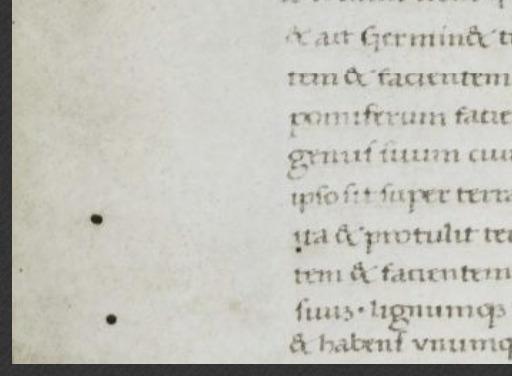 & ait Germin& t
tem & facientem
pomiferum facie
genus suum cuiu
ipso sit super terra
ita & protulit te
tem & facientem
suu3· lignumq3
& habens vnumq